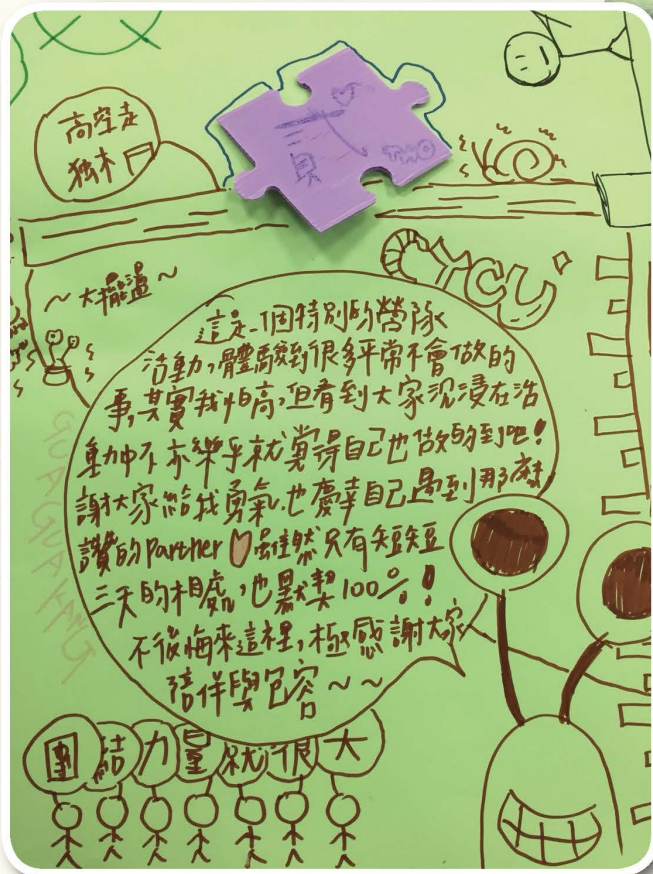 高空走
獨木
貳
TWO
CYCU
~大擺盪~
這是一個特別的營隊
活動,體驗到很多平常不會做的
事,其實我怕高,但看到大家沉浸在活
動中不亦樂乎就覺得自己也做的到吧!
謝大家給我勇氣也慶幸自己遇到那麼
讚的Partner♡雖然只有短短
三天的相處,也默契100%!
不後悔來這裡,極感謝大家
陪伴與包容~~
GUAGUAKANG
團結力量就很大